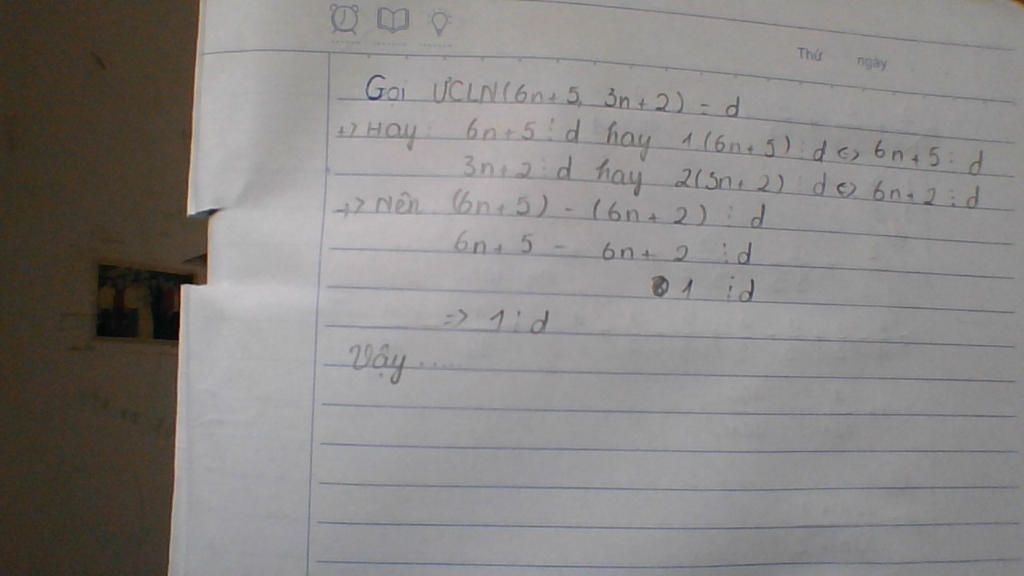 Thứ ngày
Gọi ƯCLN(6n+5, 3n+2) = d
=> Hay: 6n+5 ⋮ d hay 1(6n+5) ⋮ d <=> 6n+5 ⋮ d
3n+2 ⋮ d hay 2(3n+2) ⋮ d <=> 6n+2 ⋮ d
=> Nên (6n+5) - (6n+2) ⋮ d
6n+5 - 6n+2 ⋮ d
1 ⋮ d
=> 1 ⋮ d
Vậy .....